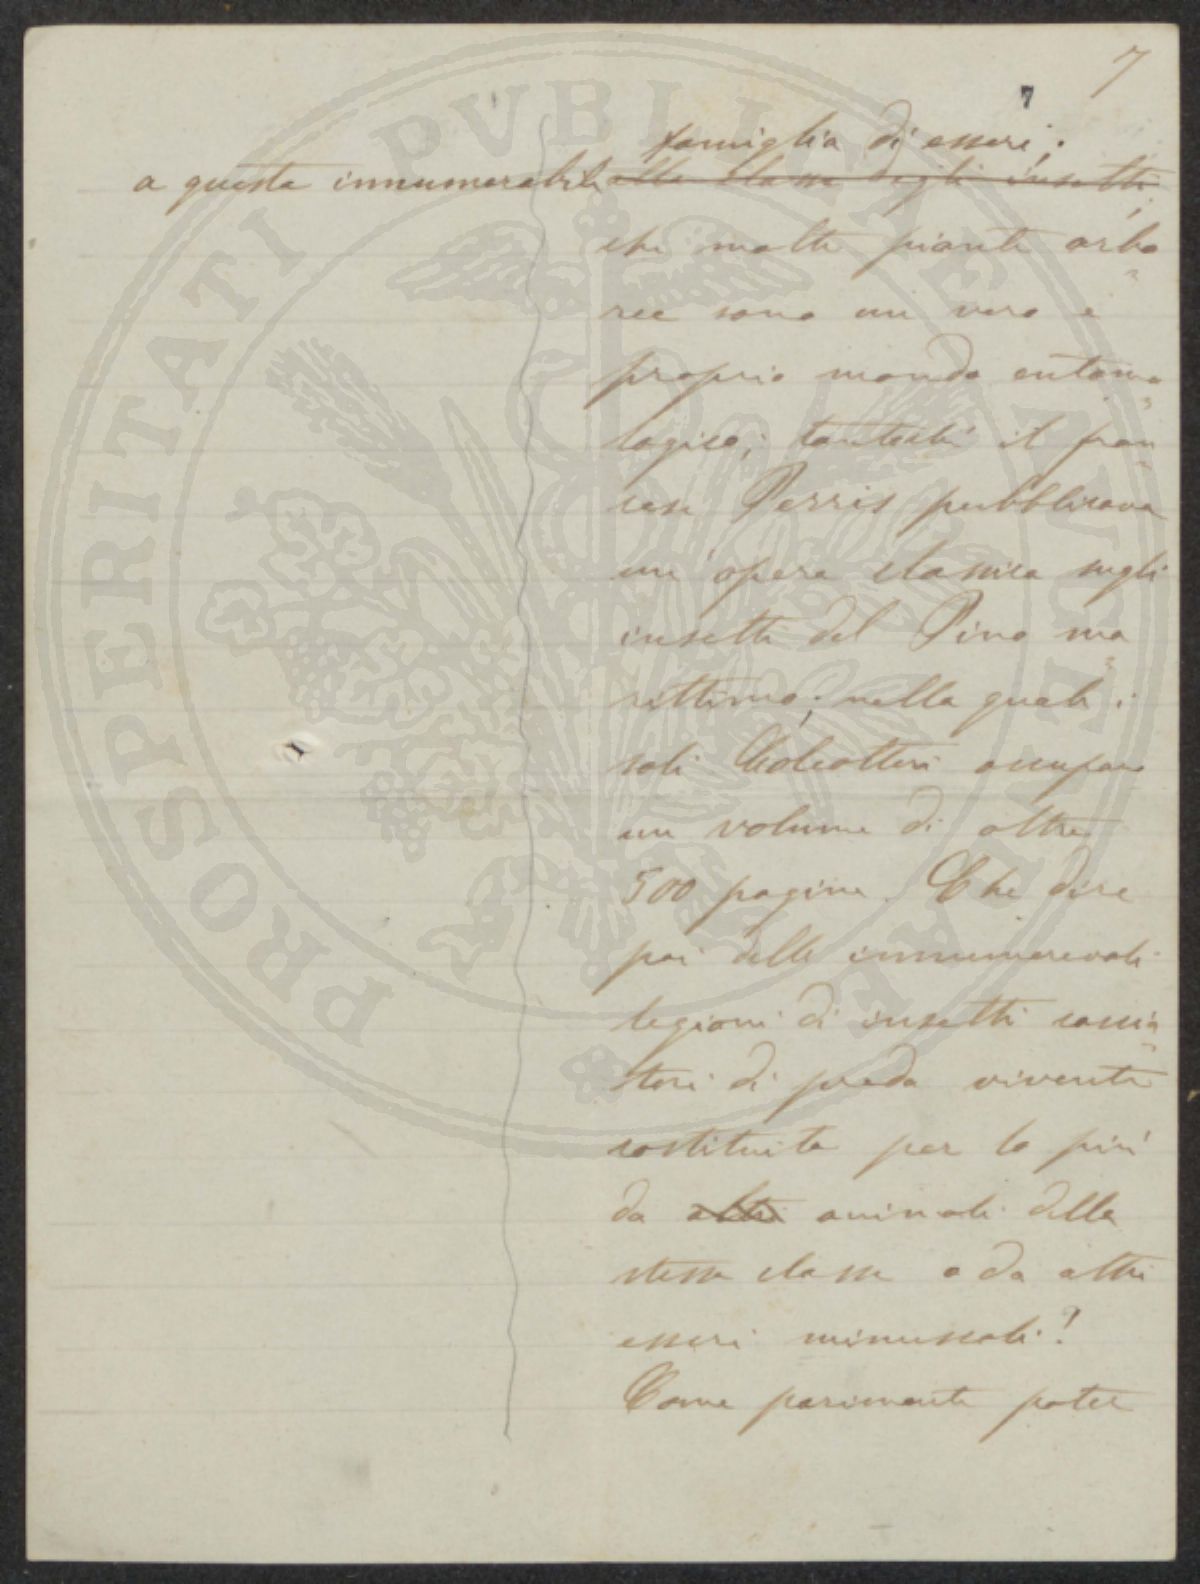 7
7
famiglia di esseri;
a questa innumerabile alla classe degli insetti
che molte piante arbo
ree sono un vero e
proprio mondo entomo
logico; tantochè il fran
cese Perris pubblicava
un'opera classica sugli
insetti del Pino ma
rittimo; nella quale i
soli Coleotteri occupano
un volume di oltre
500 pagine. Che dire
poi delle innumerevoli
legioni di insetti caccia
tori di preda vivente
costituita per lo più
da altri animali della
stessa classe o da altri
esseri minuscoli?
Come parimente poter
PROSPERITATI PVBLICAE AVGENDAE